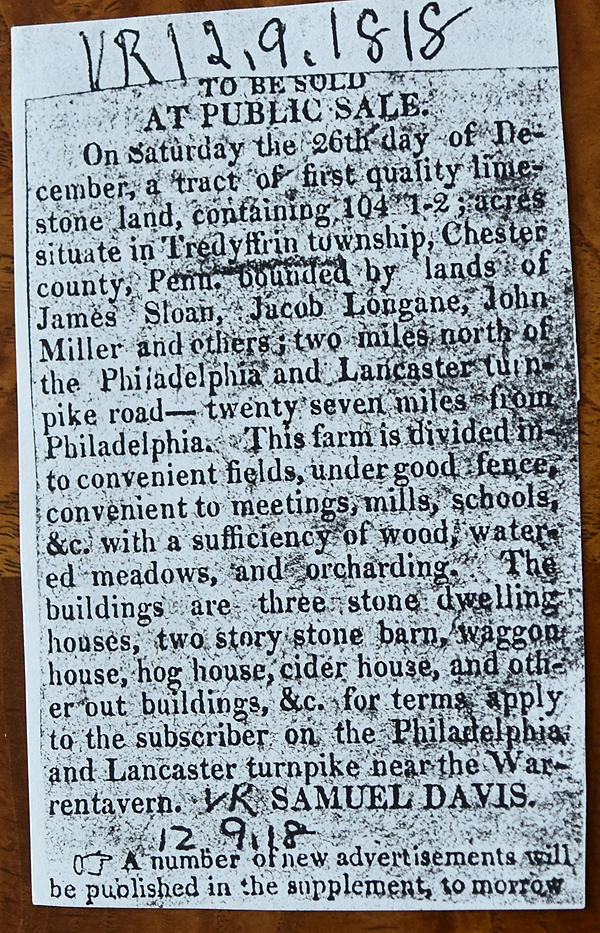 VR 12.9.1818
TO BE SOLD
AT PUBLIC SALE.
On Saturday the 26th day of De-
cember, a tract of first quality lime-
stone land, containing 104 1-2; acres
situate in Tredyffrin township, Chester
county, Penn. bounded by lands of
James Sloan, Jacob Longane, John
Miller and others; two miles north of
the Philadelphia and Lancaster turn-
pike road— twenty seven miles from
Philadelphia. This farm is divided in-
to convenient fields, under good fence,
convenient to meetings, mills, schools,
&c. with a sufficiency of wood, water-
ed meadows, and orcharding. The
buildings are three stone dwelling
houses, two story stone barn, waggon
house, hog house, cider house, and oth-
er out buildings, &c. for terms apply
to the subscriber on the Philadelphia
and Lancaster turnpike near the War-
rentavern. VR SAMUEL DAVIS.
12 9.18
☞ A number of new advertisements will
be published in the supplement, to morrow